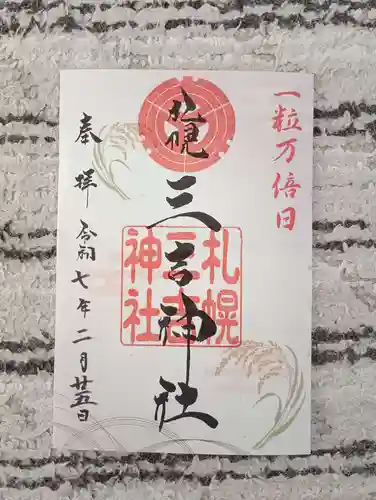 一粒万倍日
札幌
三吉神社
札幌
三吉
神社
奉拝
令和七年二月廿五日